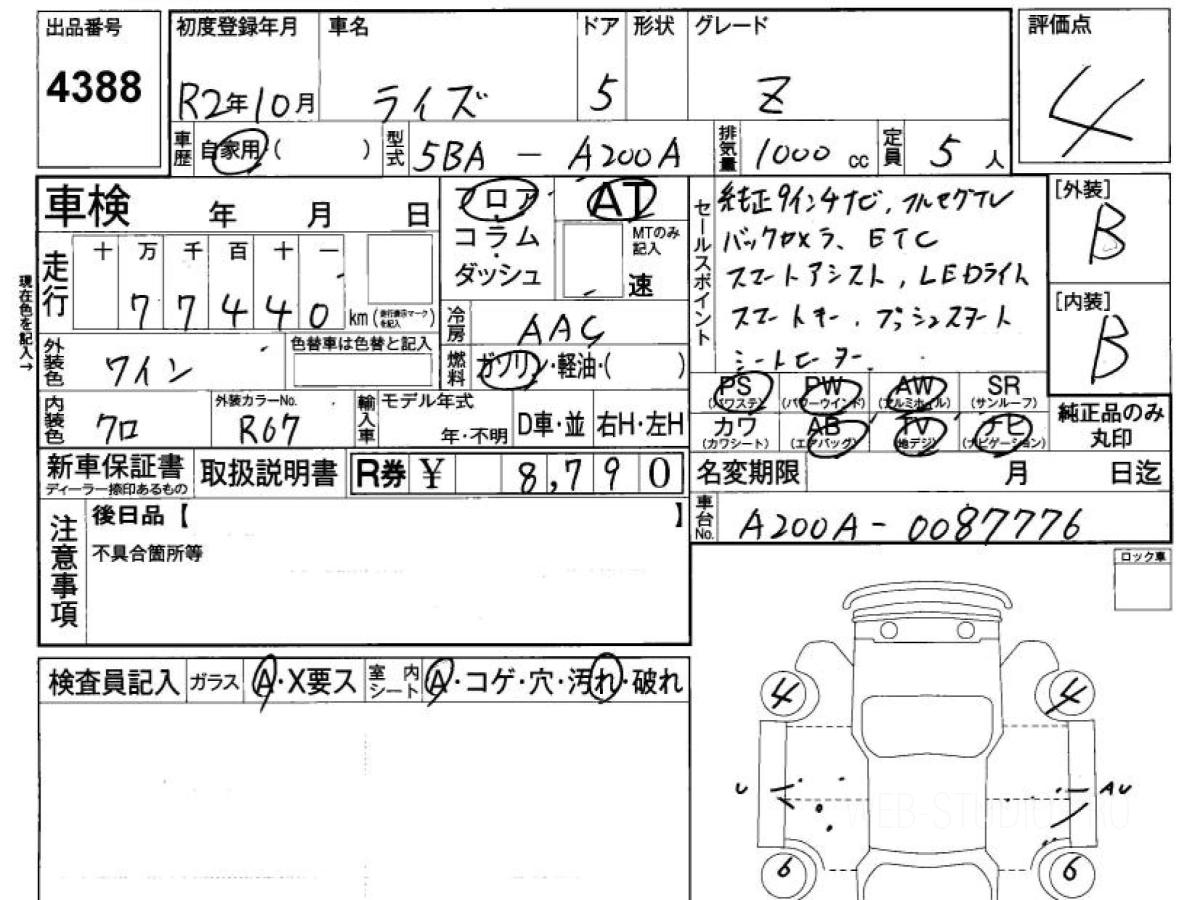 出品番号 初度登録年月 車名 ドア 形状 グレード 評価点
4388 R2年10月 ライズ 5 Z 4
車歴 自家用 ( ) 型式 5BA - A200A 排気量 1000 cc 定員 5 人
車検 年 月 日
フロア コラム・ダッシュ
AT
MTのみ記入
速
セールスポイント
純正9インチナビ、フルセグTV
バックカメラ、ETC
スマートアシスト、LEDライト
スマートキー、プッシュスタート
シートヒーター
[外装]
B
[内装]
B
現在色を記入→
走行 十 万 千 百 十 一
77440 km (走行表示マークを記入)
冷房 AAC
外装色 ワイン
色替車は色替と記入
燃料 ガソリン・軽油・( )
PS (パワステ) PW (パワーウインド) AW (アルミホイル) SR (サンルーフ)
カワ (カワシート) AB (エアバッグ) TV (地デジ) ナビ (ナビゲーション)
純正品のみ丸印
内装色 クロ
外装カラーNo. R67
輸入車 モデル年式 年・不明 D車・並 右H・左H
新車保証書 ディーラー捺印あるもの 取扱説明書 R券 ¥ 8,790
名変期限 月 日迄
車台No. A200A-0087776
注意事項
後日品【 】
不具合箇所等
ロック車
検査員記入 ガラス A・X要ス 室内シート A・コゲ・穴・汚れ・破れ
4 4
U AU
WEB-STUDIO.RU
6 6